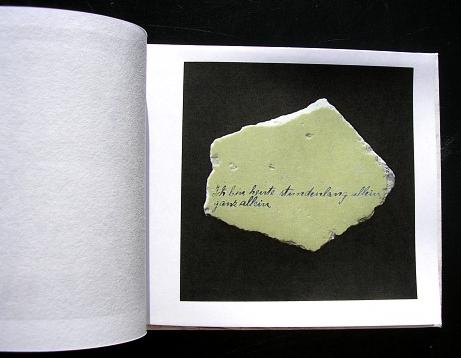 Ich bin heute stundenlang allein
ganz allein